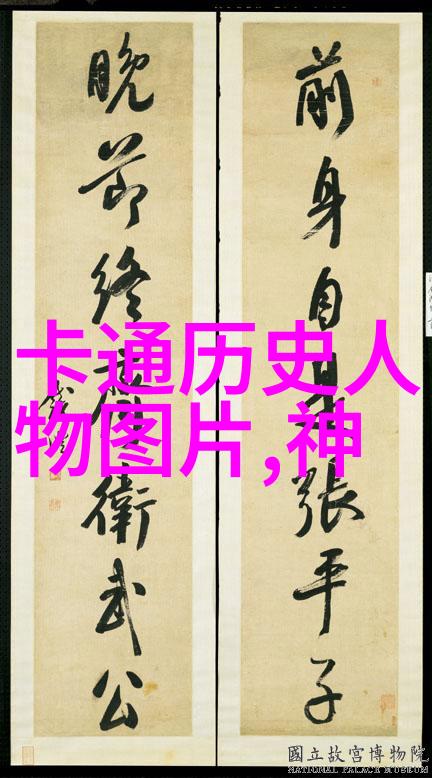 前身自是張平子
晚節終衛武公
卡通历史人
物图片,神
國立故宮博物院
NATIONAL PALACE MUSEUM